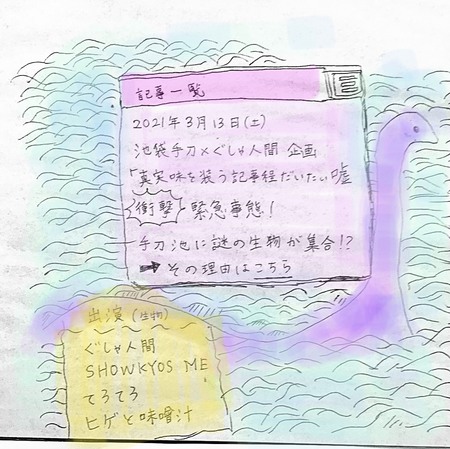 記事一覧
2021年3月13日(土)
池袋手刀×ぐしゃ人間 企画
「真実味を装う記事程だいたい嘘
衝撃 緊急事態!
手刀池に謎の生物が集合!?
➡その理由はこちら
出演(生物)
ぐしゃ人間
SHOWKYOS ME
てろてろ
ヒゲと味噌汁